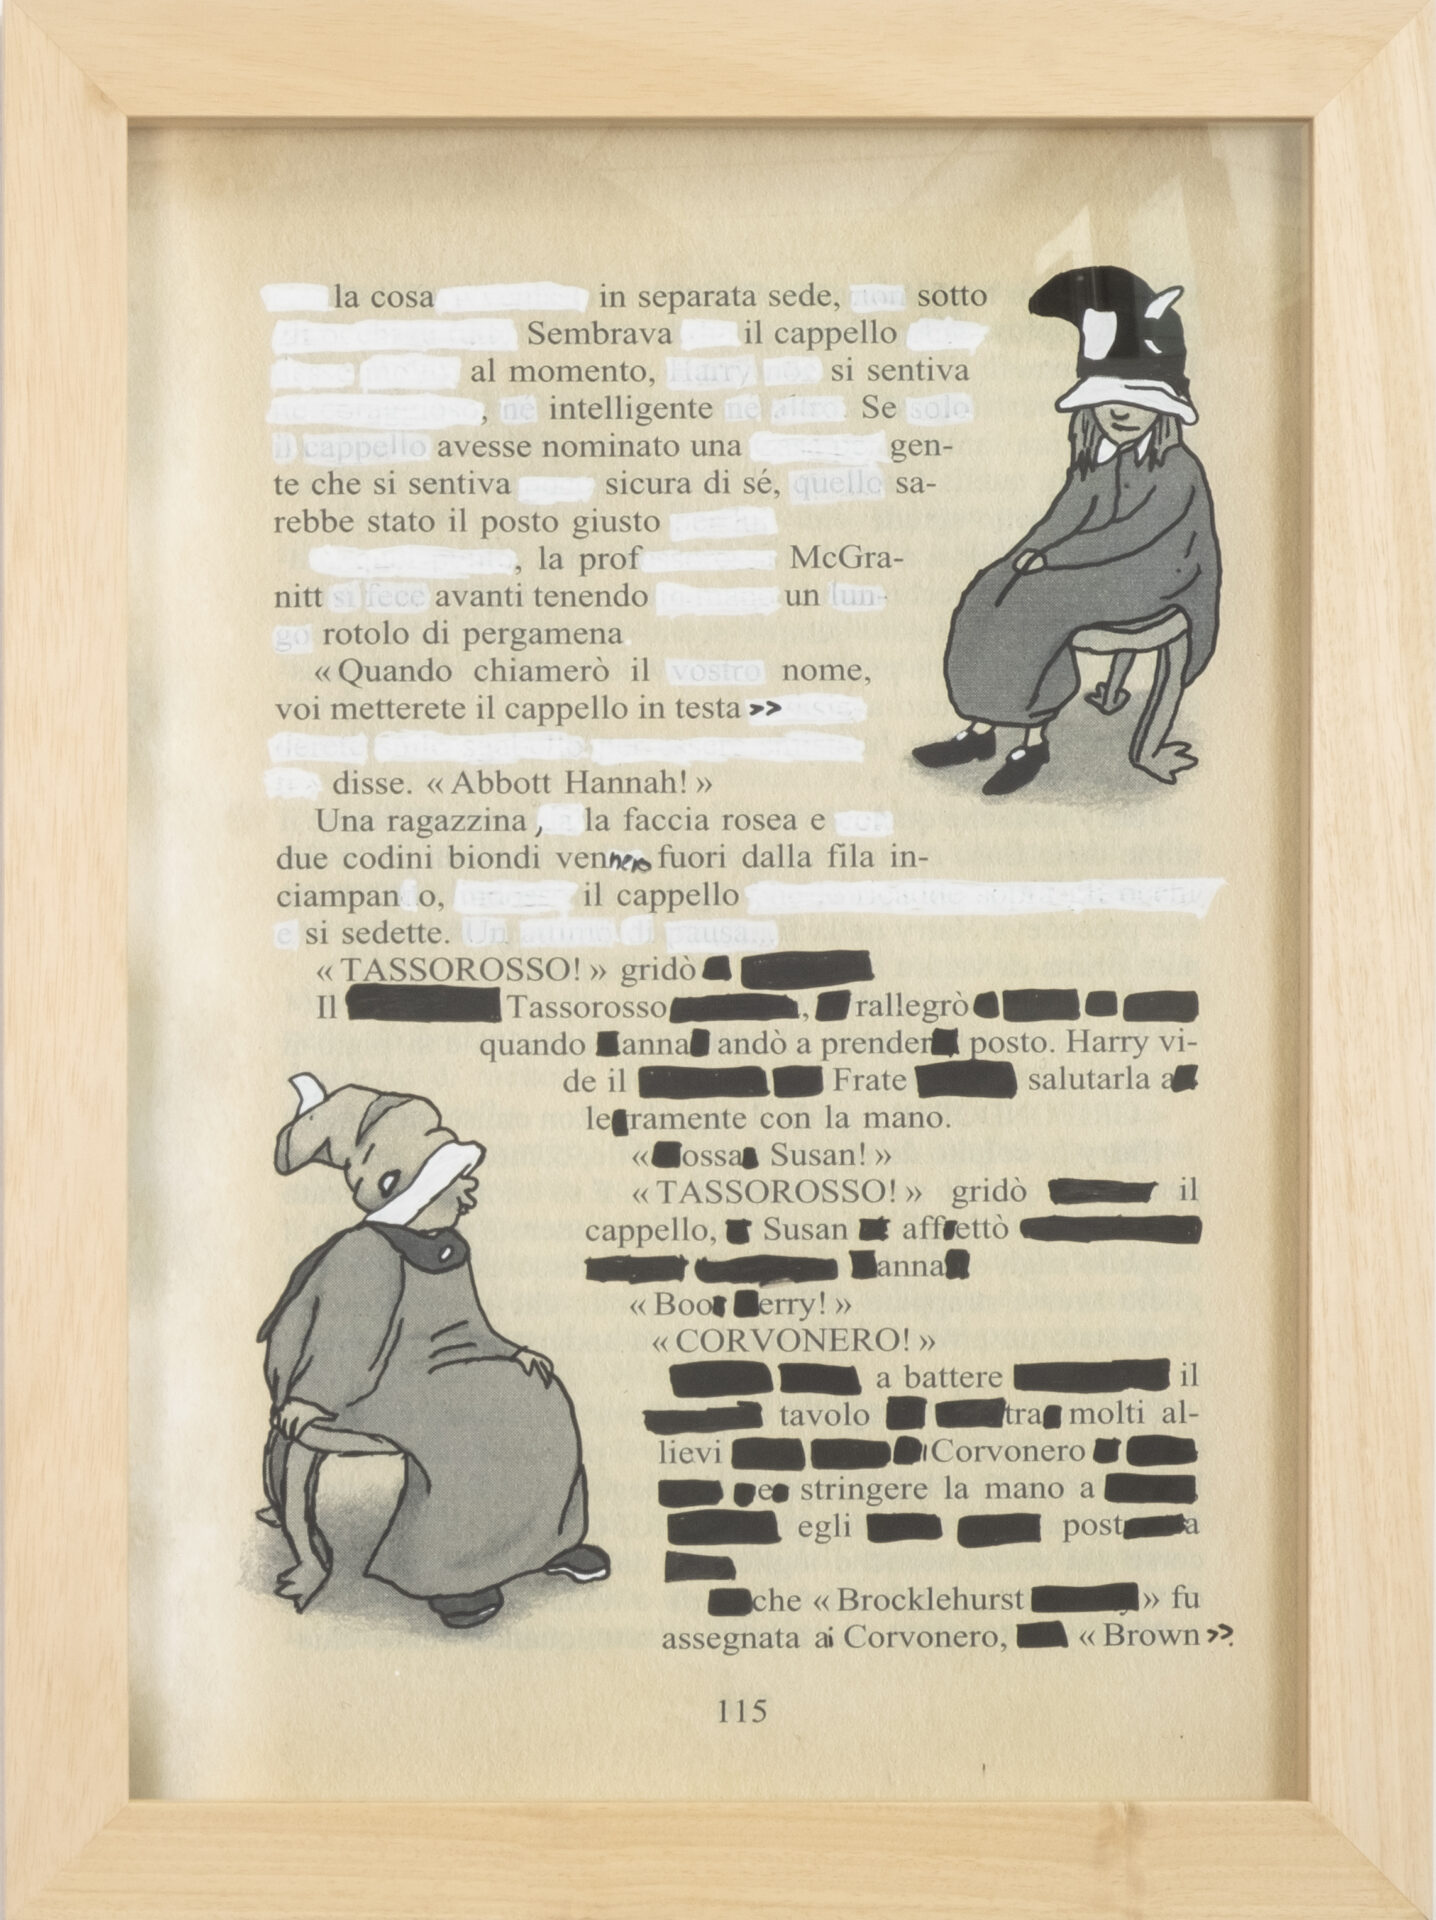 la cosa in separata sede, sotto
Sembrava il cappello
al momento, Harry si sentiva
, né intelligente né altro. Se solo
il cappello avesse nominato una gen-
te che si sentiva sicura di sé, quello sa-
rebbe stato il posto giusto
, la prof McGra-
nitt si fece avanti tenendo un lun-
go rotolo di pergamena
« Quando chiamerò il vostro nome,
voi metterete il cappello in testa >>
disse. « Abbott Hannah! »
Una ragazzina, la faccia rosea e
due codini biondi vennero fuori dalla fila in-
ciampan o, il cappello
e si sedette. Un attimo di pausa
« TASSOROSSO! » gridò
Il Tassorosso , rallegrò
quando anna andò a prender posto. Harry vi-
de il Frate salutarla a
le ramente con la mano.
« ossa Susan! »
« TASSOROSSO! » gridò il
cappello, Susan aff ettò
anna
« Boo erry! »
« CORVONERO! »
a battere il
tavolo tra molti al-
lievi Corvonero
e stringere la mano a
egli post a
che « Brocklehurst » fu
assegnata ai Corvonero, « Brown >>.
115